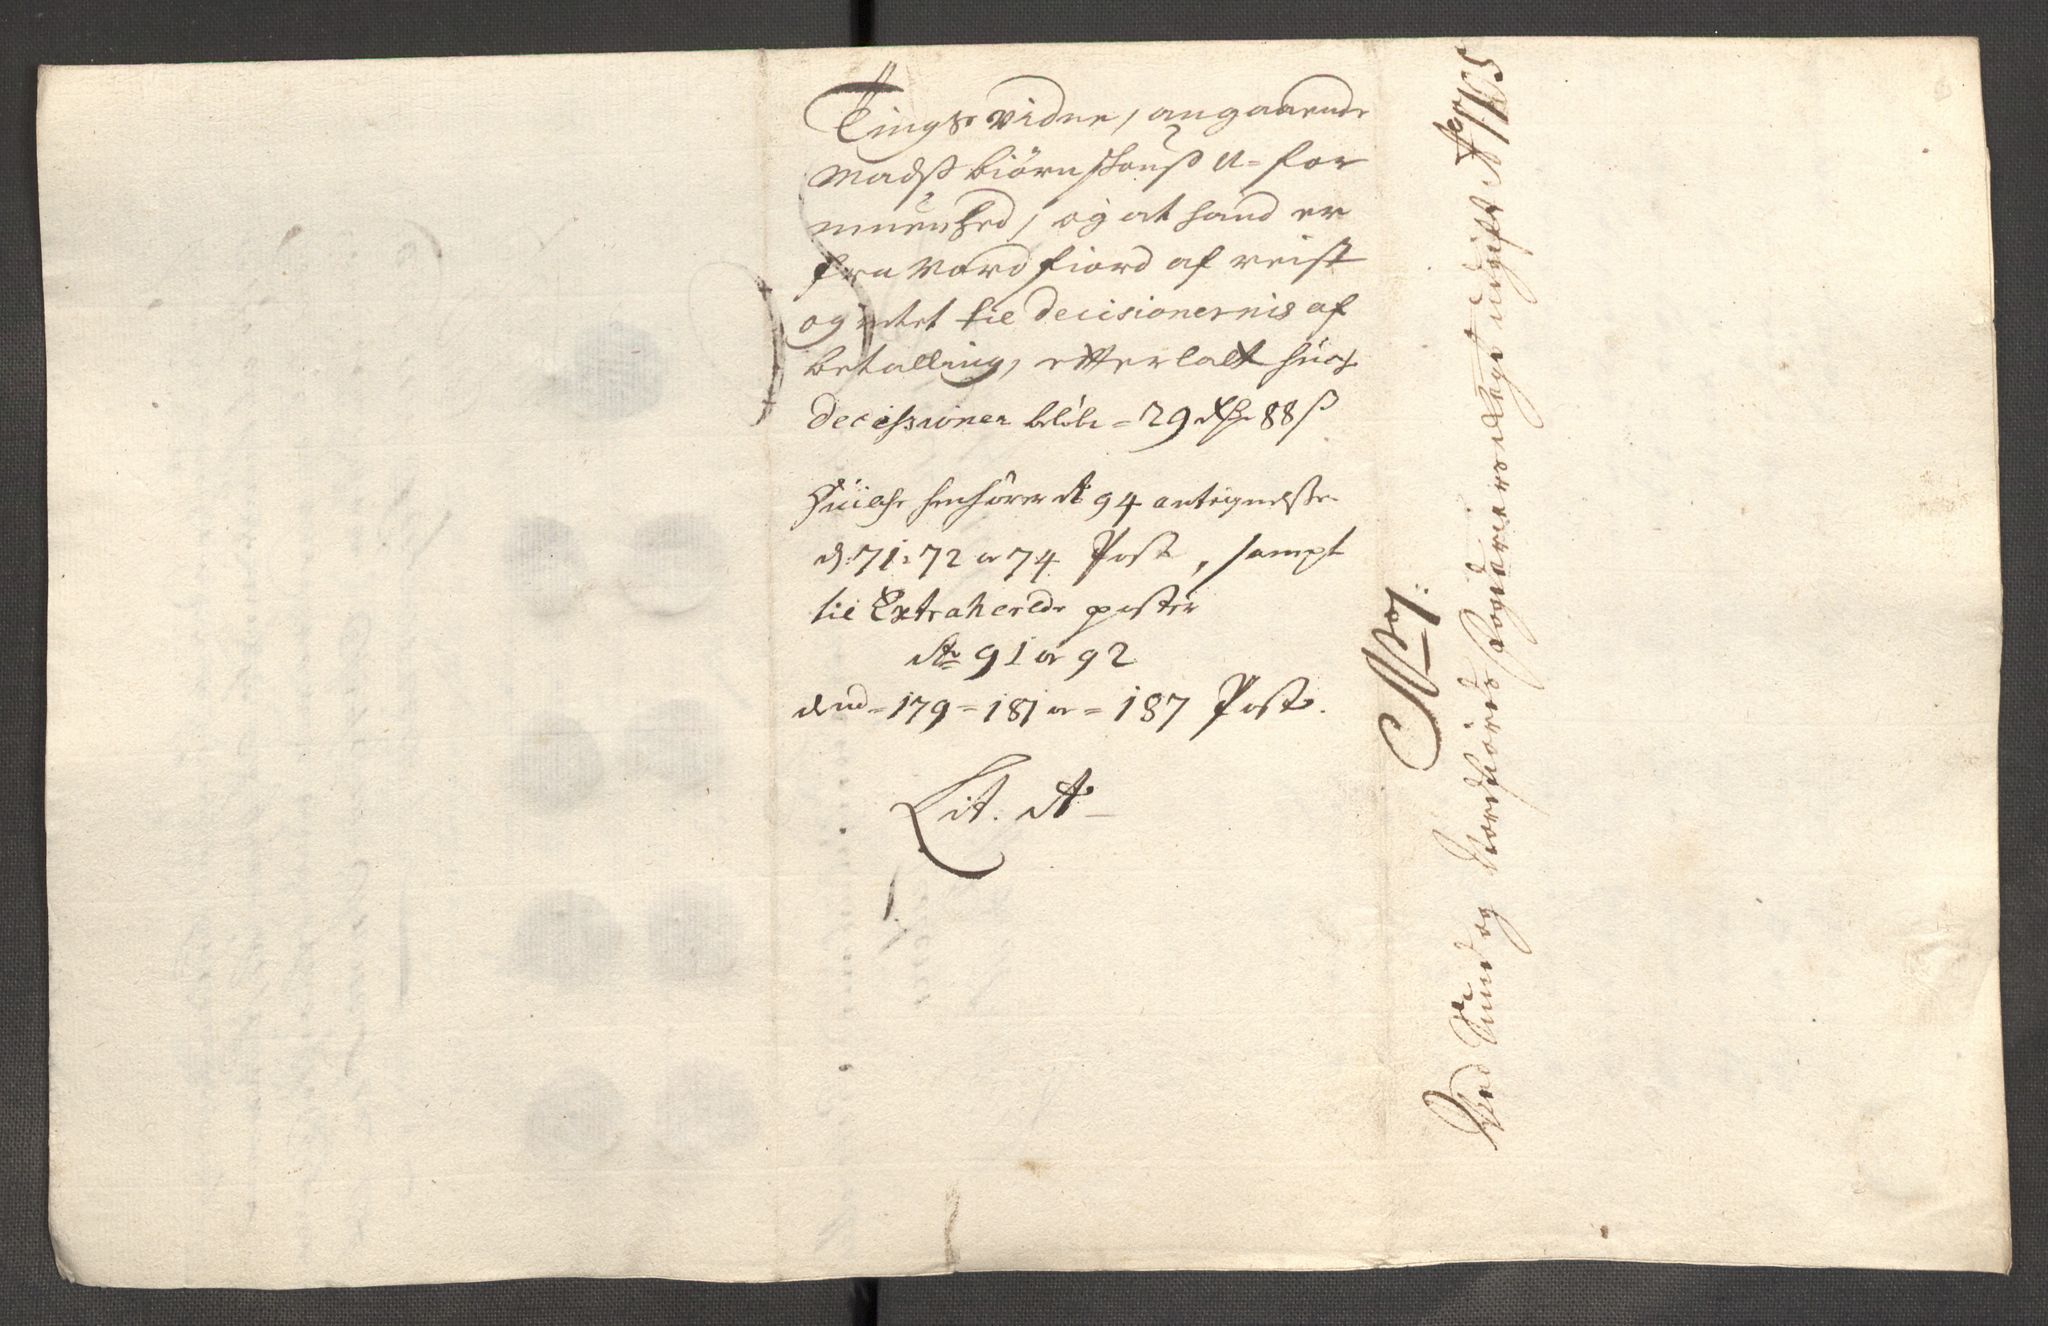 Tings vidne, angaaende
Madss Biørnssønss U-for
muenhed, og at hand er
fra Nordfiord af reist
og intet til decisionernis af
betalling, efterlatt huis
decissioner belöber = 29 Rdr 88 ß
Huilche henhörer til 94 antegnelsser
d: 71: 72 og 74 Post, sampt
til Extraherede poster
Ao 91 og 92
dend = 179 = 181 og = 187 Post.
Lit. A
No 7:
Ved Sund og Nordfiords fogderies udgift Ao 1705